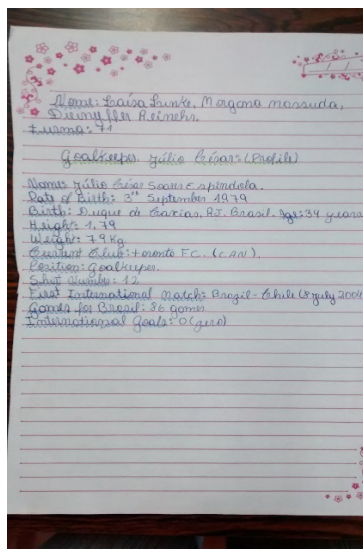 Nome: Laísa Lunke, Morgana massuda,
Dienyffer Reinehr.
Turma: 71
Goalkeeper Júlio César: (Profile)
Name: Júlio César Soares Espíndola.
Date of Birth: 3rd September 1979
Birth: Duque de Caxias, RJ, Brasil. Age: 34 years
Height: 1.79
Weight: 79 Kg.
Current Club: toronto FC. (CAN).
Position: Goalkeeper.
Shirt Number: 12
First International match: Brazil - Chile (8 july 2004
Games for Brazil: 86 games
International Goals: 0 (zero)